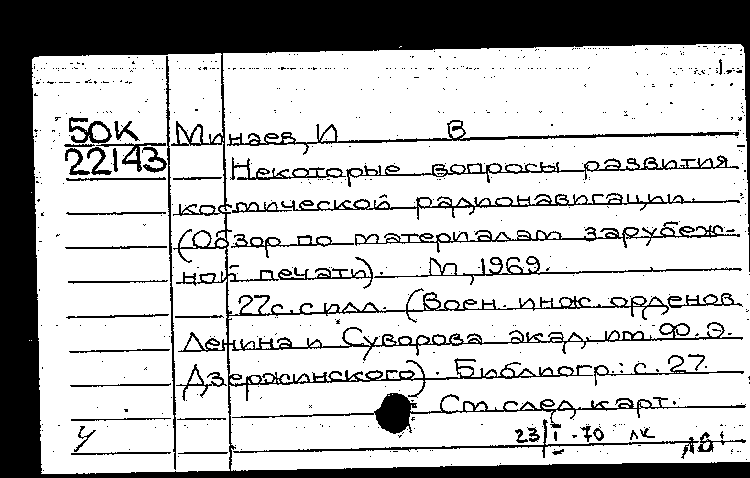 1.
50К Минаев, И В
22143 Некоторые вопросы развития
космической радионавигации.
(Обзор по материалам зарубеж-
ной печати). М., 1969.
27с. с илл. (Воен. инж. орденов
Ленина и Суворова акад. им. Ф. Э.
Дзержинского). Библиогр.: с. 27.
См. след. карт.
У 23/I - 70 лк